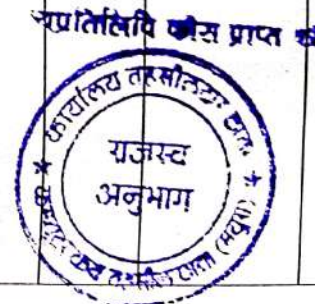 सप्रतिलिपि फीस प्राप्त
कार्यालय तहसीलदार छाता
राजस्व
अनुभाग
तहसील छाता (मथुरा)